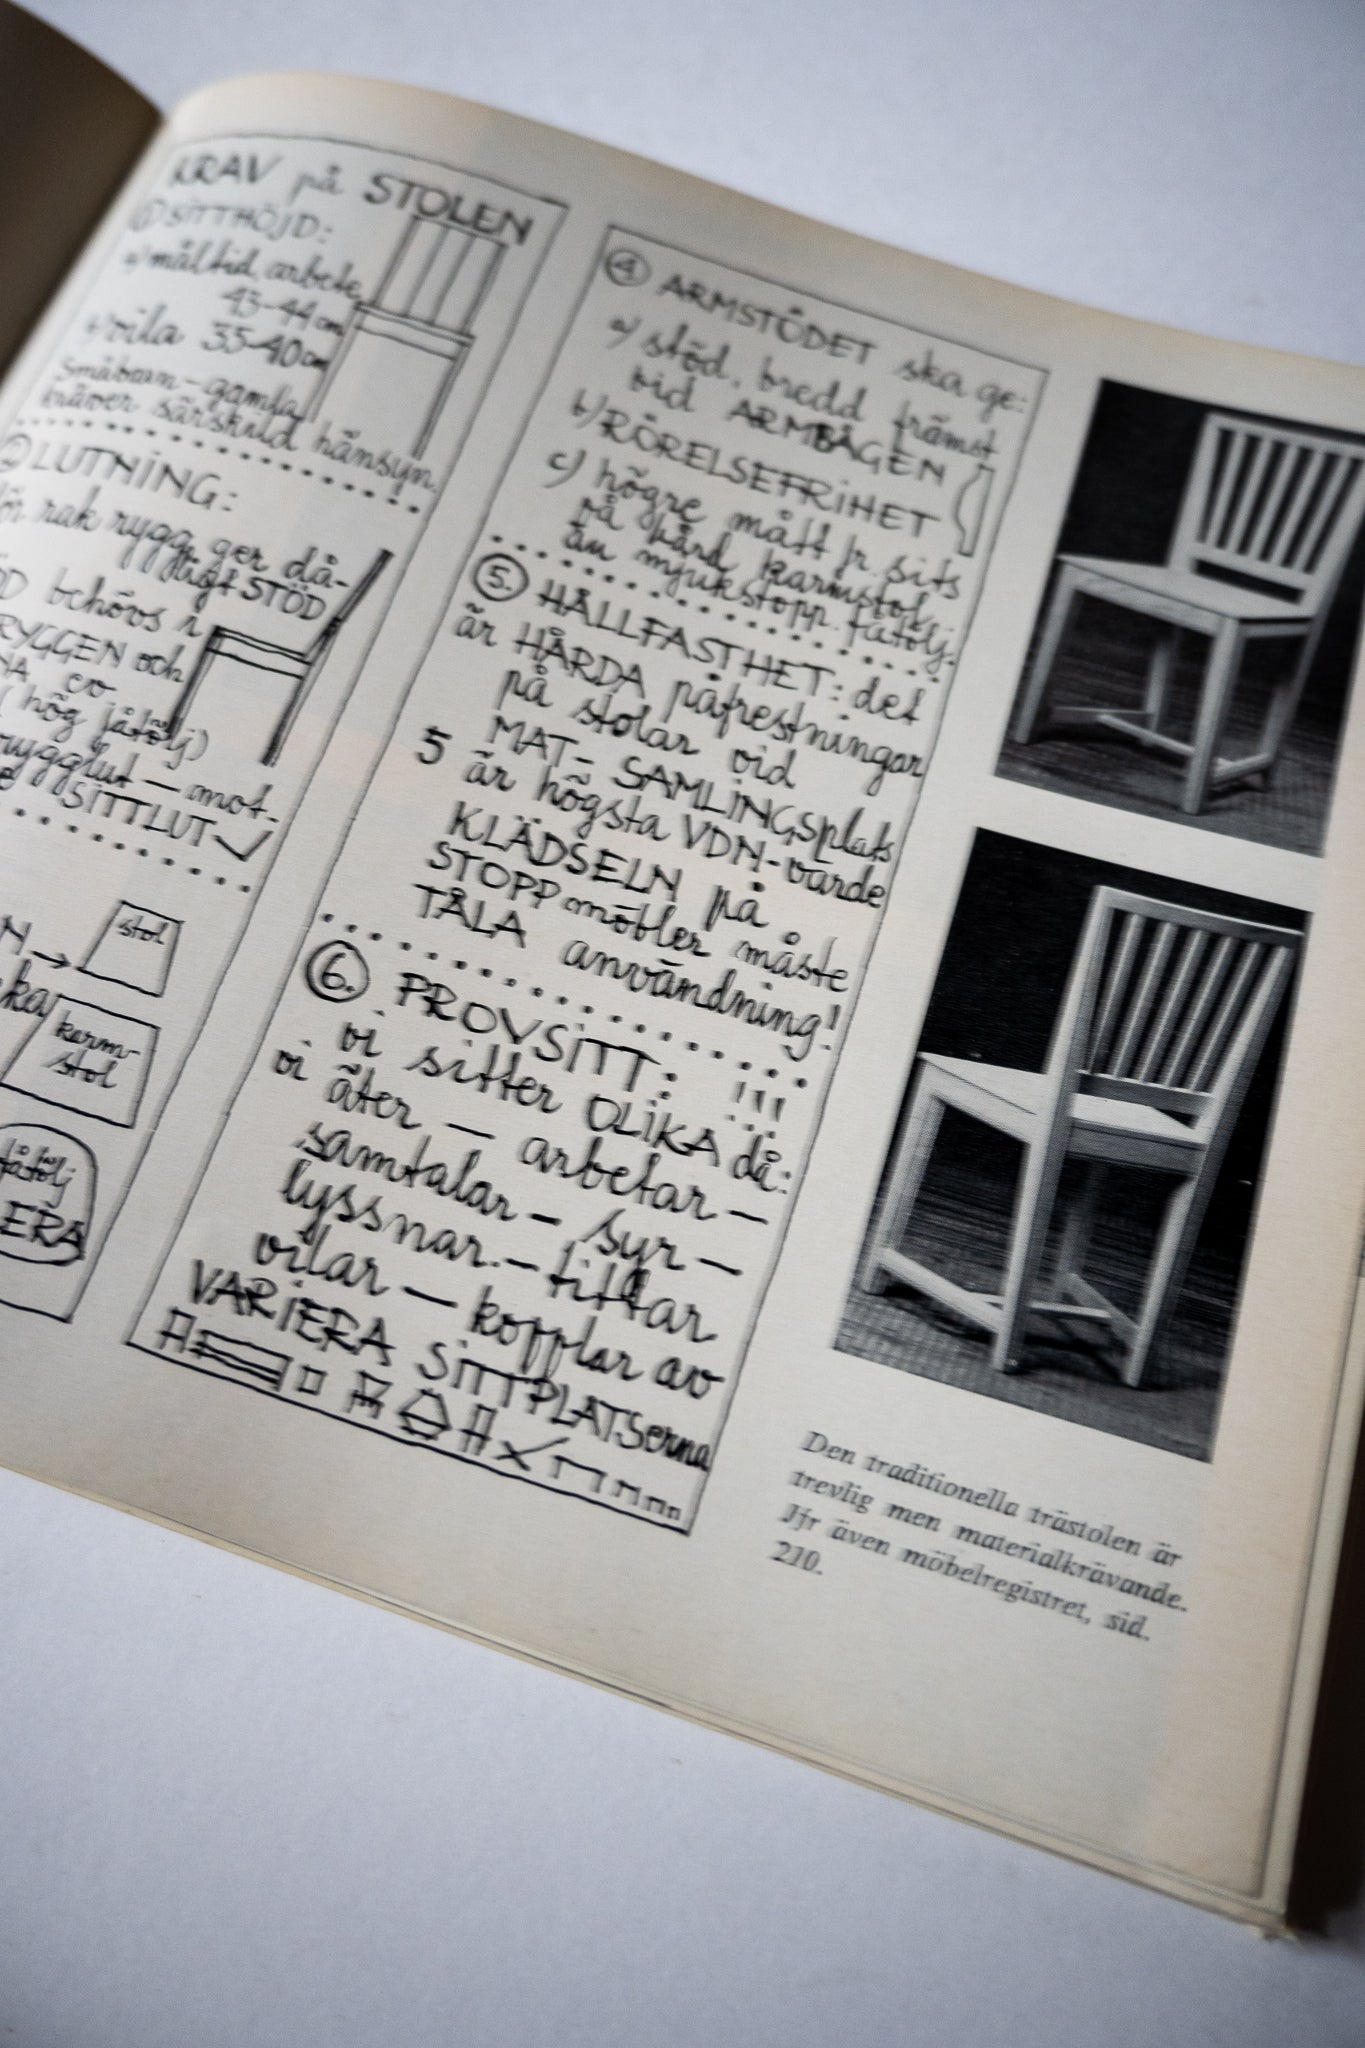 KRAV på STOLEN
① SITTHÖJD:
a) måltid, arbete
43-44 cm
b) vila 35-40 cm
Småbarn-gamla
kräver särskild hänsyn.
LUTNING:
för rak rygg ger då-
ligt STÖD
behövs i
RYGGEN och
ev
(hög fåtölj)
rygglut - mot.
SITTLUT
stol
karm-
stol
fåtölj
④ ARMSTÖDET ska ge:
a) stöd, bredd främst
vid ARMBÅGEN
b) RÖRELSEFRIHET
c) högre mått fr. sits
på hård karmstol
än mjukstopp. fåtölj.
⑤. HÅLLFASTHET: det
är HÅRDA påfrestningar
på stolar vid
MAT- SAMLINGSplats
5 är högsta VDN-värde
KLÄDSELN på
STOPPmöbler måste
TÅLA användning!
⑥. PROVSITT: !!!
vi sitter OLIKA då:
vi äter — arbetar —
samtalar — syr —
lyssnar. — tittar
vilar — kopplar av
VARIERA SITTPLATSerna
Den traditionella trästolen är
trevlig men materialkrävande.
Jfr även möbelregistret, sid.
210.